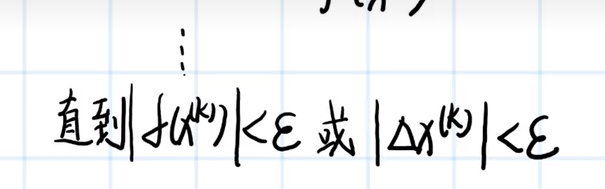 ⋮
直到|f(x^(k))|<ε 或 |Δx^(k)|<ε